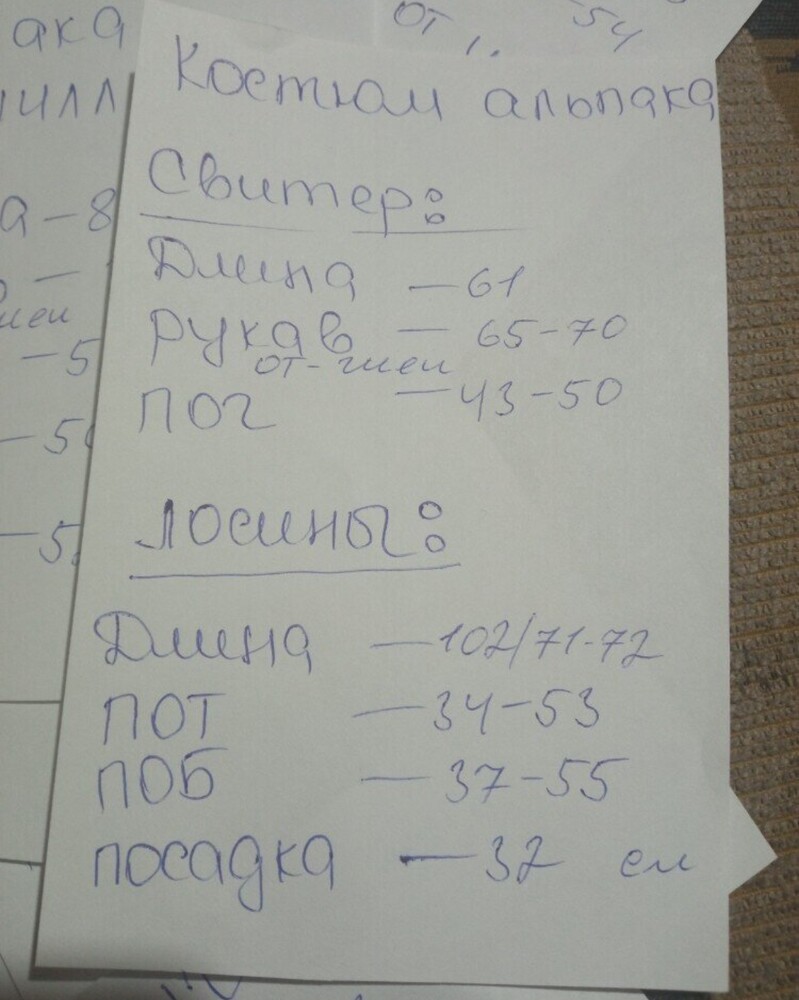 ака
от 1.
54
илл
а-8
—
-5
-5
Костюм альпака
Свитер:
Длина - 61
Рукав - 65-70
от-шеи
ПОГ - 43-50
Лосины:
Длина - 102/71-72
ПОТ - 34-53
ПОБ - 37-55
посадка - 32 см